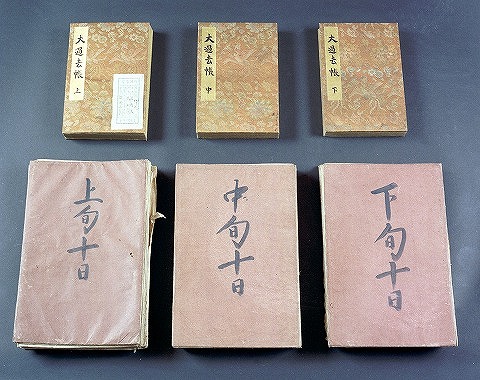 大過去帳 上
大過去帳 中
大過去帳 下
上旬十日
中旬十日
下旬十日